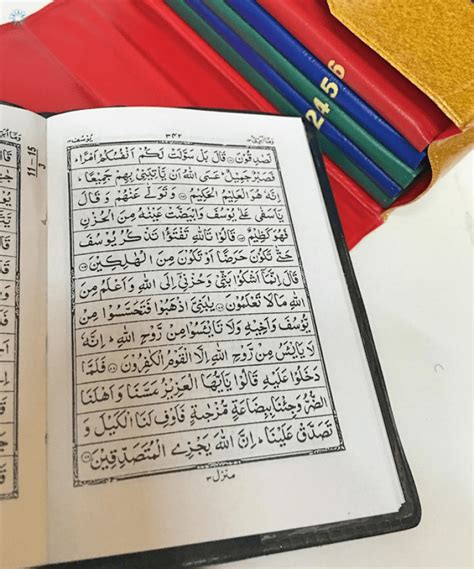 يوسف ٣٤٢
لَصٰدِقُوْنَ قَالَ بَلْ سَوَّلَتْ لَكُمْ اَنْفُسُكُمْ اَمْرًا
فَصَبْرٌ جَمِيْلٌ عَسَى اللّٰهُ اَنْ يَّاْتِيَنِيْ بِهِمْ جَمِيْعًا
اِنَّهٗ هُوَ الْعَلِيْمُ الْحَكِيْمُ وَتَوَلّٰى عَنْهُمْ وَقَالَ
يٰۤاَسَفٰى عَلٰى يُوْسُفَ وَابْيَضَّتْ عَيْنٰهُ مِنَ الْحُزْنِ
فَهُوَ كَظِيْمٌ قَالُوْا تَاللّٰهِ تَفْتَؤُا تَذْكُرُ يُوْسُفَ
حَتّٰى تَكُوْنَ حَرَضًا اَوْ تَكُوْنَ مِنَ الْهٰلِكِيْنَ
قَالَ اِنَّمَاۤ اَشْكُوْا بَثِّيْ وَحُزْنِيْۤ اِلَى اللّٰهِ وَاَعْلَمُ مِنَ
اللّٰهِ مَا لَا تَعْلَمُوْنَ يٰبَنِيَّ اذْهَبُوْا فَتَحَسَّسُوْا مِنْ
يُّوْسُفَ وَاَخِيْهِ وَلَا تَايْـَٔسُوْا مِنْ رَّوْحِ اللّٰهِ ؕ اِنَّهٗ
لَا يَايْـَٔسُ مِنْ رَّوْحِ اللّٰهِ اِلَّا الْقَوْمُ الْكٰفِرُوْنَ فَلَمَّا
دَخَلُوْا عَلَيْهِ قَالُوْا يٰۤاَيُّهَا الْعَزِيْزُ مَسَّنَا وَاَهْلَنَا
الضُّرُّ وَجِئْنَا بِبِضَاعَةٍ مُّزْجٰىةٍ فَاَوْفِ لَنَا الْكَيْلَ وَ
تَصَدَّقْ عَلَيْنَا ؕ اِنَّ اللّٰهَ يَجْزِي الْمُتَصَدِّقِيْنَ
منزل ٣
11 - 15
2456